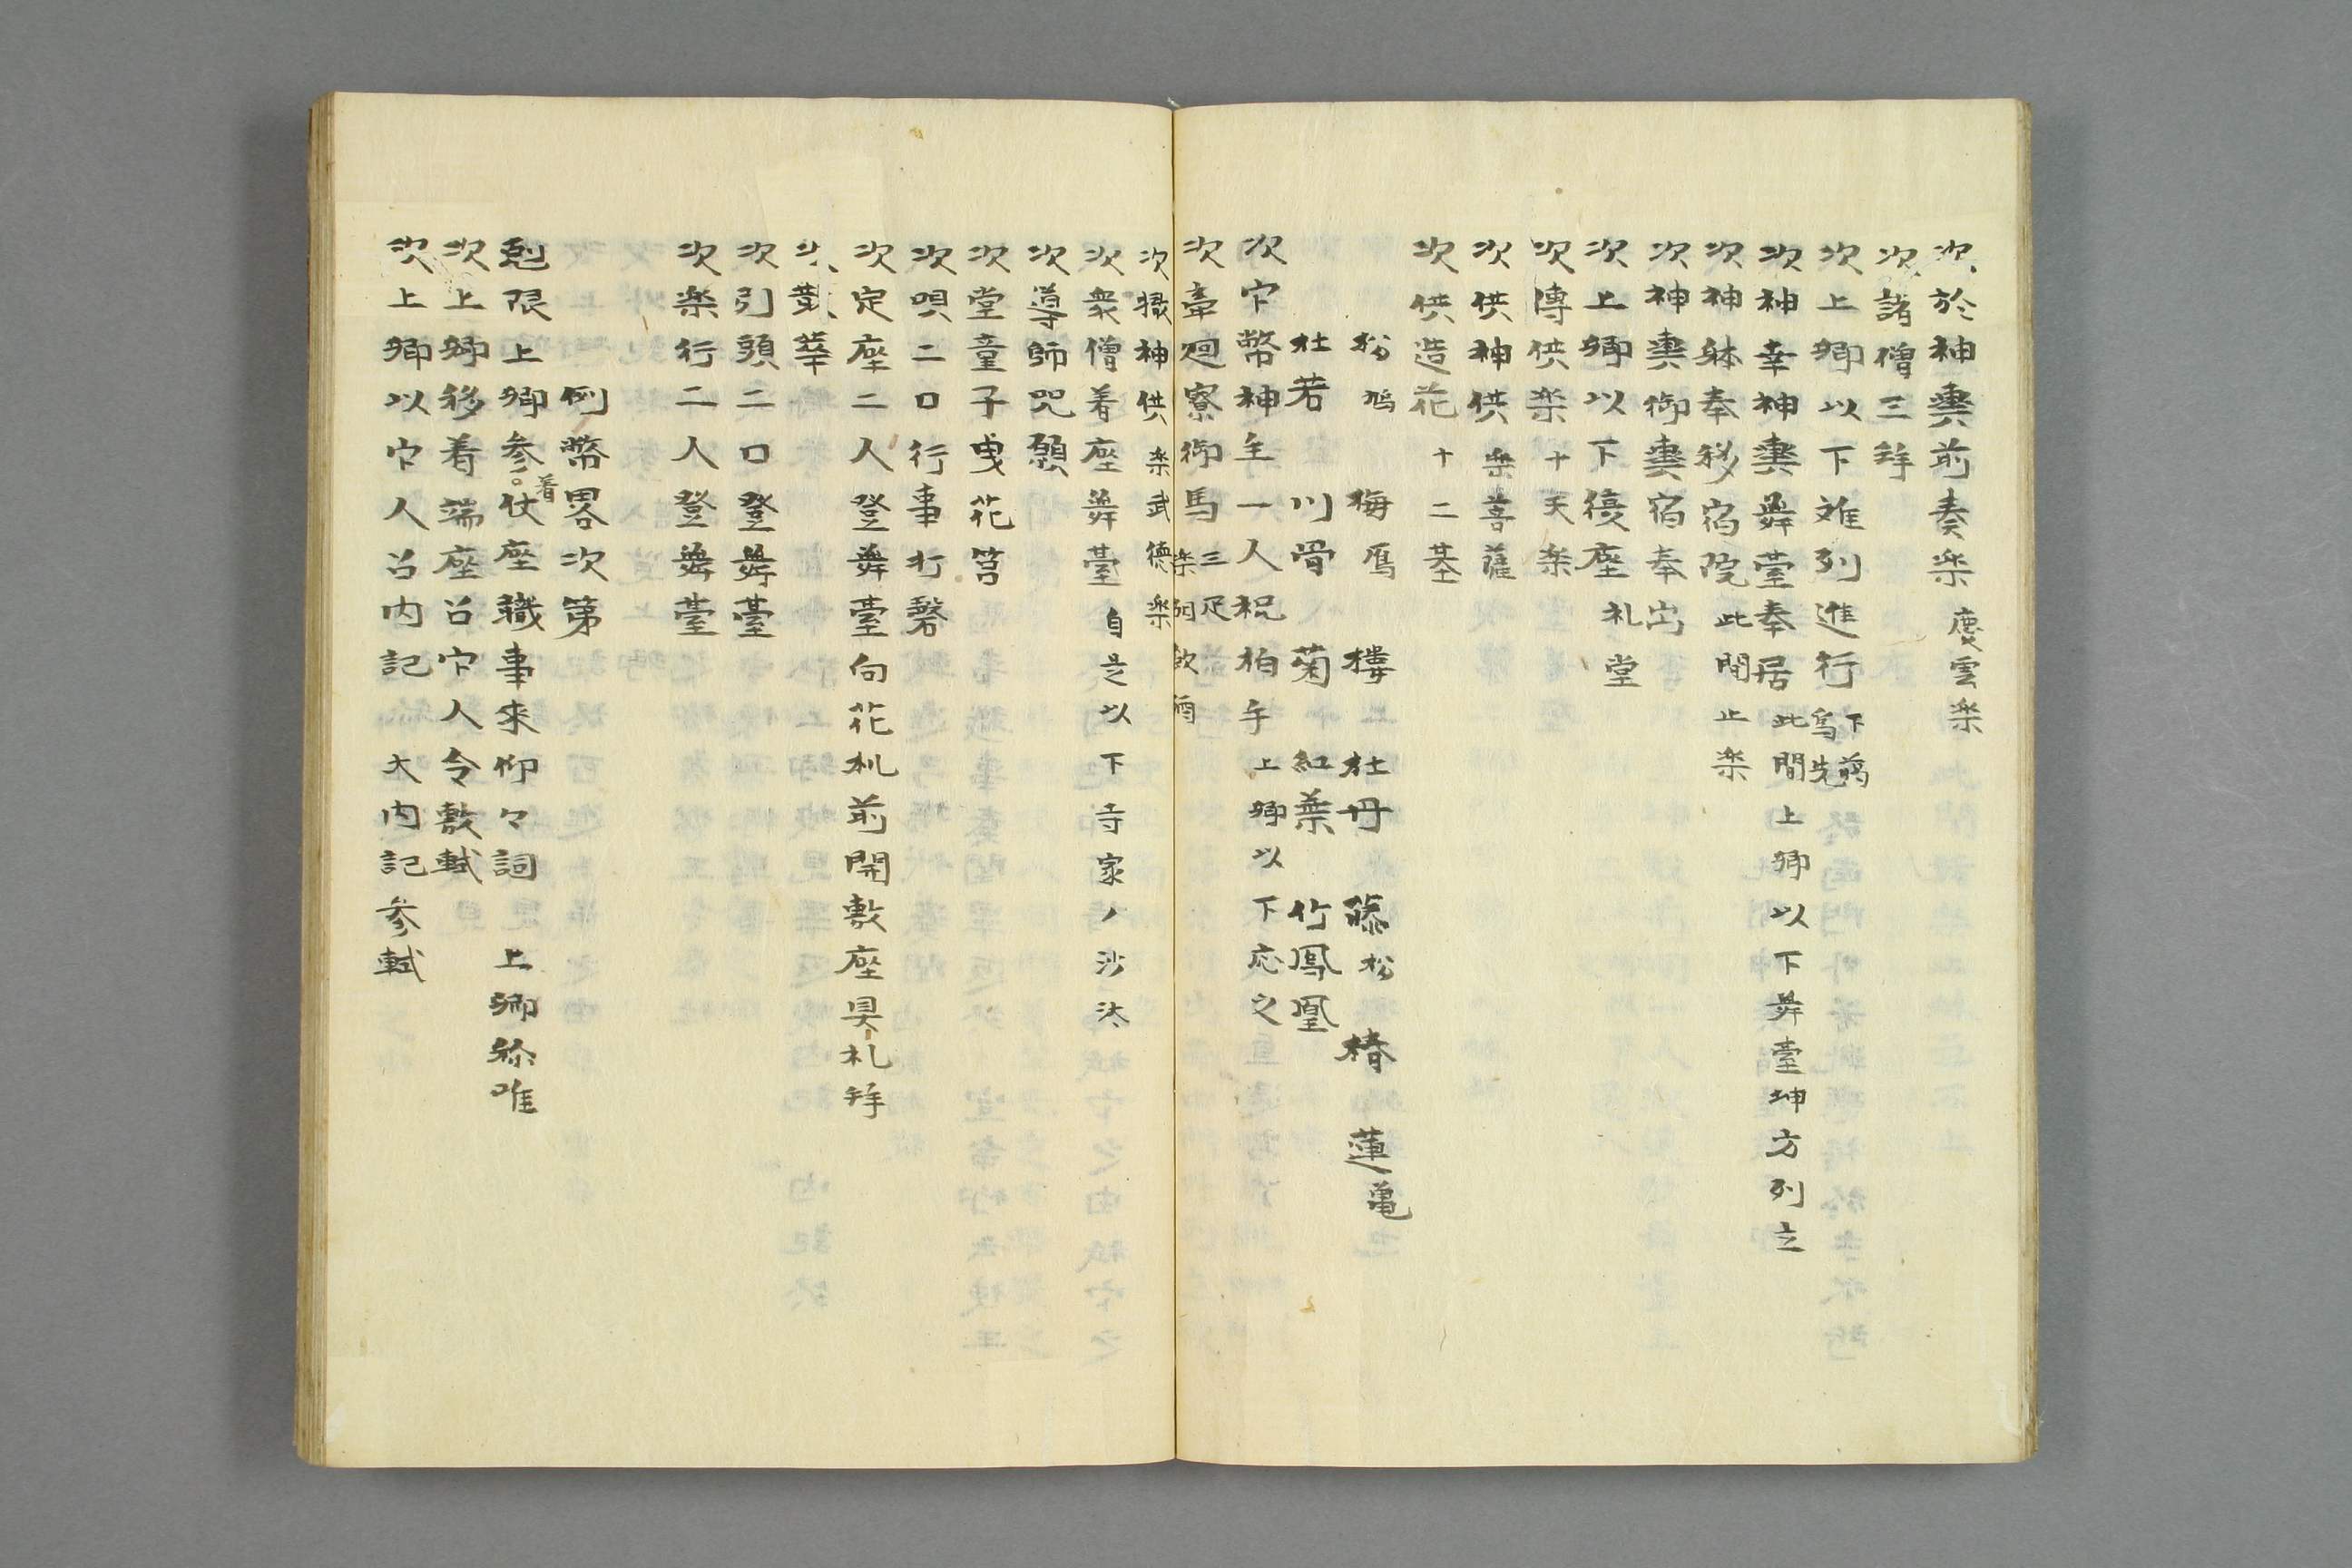 次於神輿前奏楽 慶雲楽
次諸僧三拜
次上卿以下進列進行 下﨟為先
次神幸神輿舞臺奉居 此間上卿以下舞臺坤方列立
次神躰奉移宿院 此間止楽
次神輿御輿宿奉出
次上卿以下復座 礼堂
次傳供楽 十天楽
次供神供 楽菩薩
次供造花 十二基
松鳩 梅鴈 桜 牡丹 藤松 椿 蓮亀
杜若 川骨 菊 紅葉 竹鳳凰
次官幣神主一人祝拍手 上卿以下応之
次牽廻寮御馬 三疋 楽胡飲酒
次撤神供 楽武徳楽
次衆僧着座舞臺 自是以下寺家ノ沙汰
次導師咒願
次堂童子曳花筥
次唄二口行事打磬
次定座二人登舞臺向花机前開敷座具礼拜
次散華
次引頭二口登舞臺
次楽行二人登舞臺
例幣畧次第
剋限上卿参着仗座職事来仰々詞 上卿称唯
次上卿移着端座召官人令敷軾
次上卿以官人召内記 大内記参軾